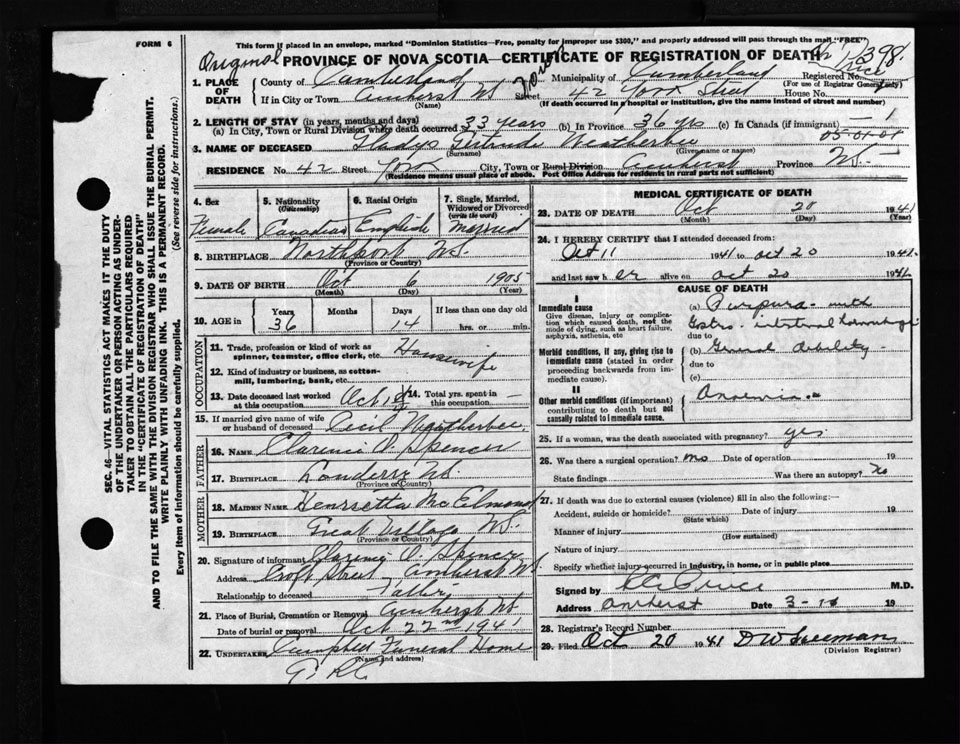 FORM 6
This form if placed in an envelope, marked "Dominion Statistics—Free, penalty for improper use $300," and properly addressed will pass through the mail "FREE"
Original PROVINCE OF NOVA SCOTIA—CERTIFICATE OF REGISTRATION OF DEATH 398
1. PLACE OF DEATH County of Cumberland Municipality of Cumberland Registered No.
(For use of Registrar General only)
If in City or Town Amherst NS Street 42 York Street House No.
(Name) (If death occurred in a hospital or institution, give the name instead of street and number)
2. LENGTH OF STAY (in years, months and days)
(a) In City, Town or Rural Division where death occurred 33 years (b) In Province 36 yrs (c) In Canada (if immigrant) —
3. NAME OF DECEASED Gladys Gertrude Weatherbee
(Surname) (Given name or names)
RESIDENCE No. 42 Street York City, Town or Rural Division Amherst Province NS
(Residence means usual place of abode. Post Office Address for residents in rural parts not sufficient)
4. Sex Female
5. Nationality (Citizenship) Canadian
6. Racial Origin English
7. Single, Married, Widowed or Divorced (write the word) Married
8. BIRTHPLACE Northport NS.
(Province or Country)
9. DATE OF BIRTH Oct 6 1905
(Month) (Day) (Year)
10. AGE in Years 36 Months Days 14 If less than one day old hrs. or min.
OCCUPATION
11. Trade, profession or kind of work as spinner, teamster, office clerk, etc. Housewife
12. Kind of industry or business, as cotton-mill, lumbering, bank, etc.
13. Date deceased last worked at this occupation Oct 14. Total yrs. spent in this occupation —
15. If married give name of wife or husband of deceased Cecil Weatherbee
FATHER
16. NAME Clarence O. Spencer
17. BIRTHPLACE Londerry NS.
(Province or Country)
MOTHER
18. MAIDEN NAME Henrietta McElmond
19. BIRTHPLACE Great Village NS.
(Province or Country)
20. Signature of informant Clarence O. Spencer
Address Croft Street Amherst NS.
Relationship to deceased Father
21. Place of Burial, Cremation or Removal Amherst NS
Date of burial or removal Oct 22nd 1941
22. UNDERTAKER Campbell Funeral Home
(Name and address)
MEDICAL CERTIFICATE OF DEATH
23. DATE OF DEATH Oct 20 1941
(Month) (Day)
24. I HEREBY CERTIFY that I attended deceased from:
Oct 11 1941 to Oct 20 1941
and last saw her alive on Oct 20 1941
CAUSE OF DEATH
I
Immediate cause
Give disease, injury or complication which caused death, not the mode of dying, such as heart failure, asphyxia, asthenia, etc
(a) Purpura with
Gastro. intestinal hemorrhage
due to
Morbid conditions, if any, giving rise to immediate cause (stated in order proceeding backwards from immediate cause).
(b) General debility
due to
(c)
II
Other morbid conditions (if important) contributing to death but not causally related to immediate cause.
Anaemia
25. If a woman, was the death associated with pregnancy? yes
26. Was there a surgical operation? no Date of operation 19
State findings Was there an autopsy? No
27. If death was due to external causes (violence) fill in also the following:—
Accident, suicide or homicide? Date of injury 19
(State which)
Manner of injury
(How sustained)
Nature of injury
Specify whether injury occurred in industry, in home, or in public place
Signed by M.D.
Address Amherst Date 19
28. Registrar's Record Number
29. Filed Oct 20 1941 D W Freeman
(Division Registrar)
SEC. 46—VITAL STATISTICS ACT MAKES IT THE DUTY
OF THE UNDERTAKER OR PERSON ACTING AS UNDER-
TAKER TO OBTAIN ALL THE PARTICULARS REQUIRED
IN THE "CERTIFICATE OF REGISTRATION OF DEATH"
AND TO FILE THE SAME WITH THE DIVISION REGISTRAR WHO SHALL ISSUE THE BURIAL PERMIT.
WRITE PLAINLY WITH UNFADING INK. THIS IS A PERMANENT RECORD.
Every item of information should be carefully supplied. (See reverse side for instructions.)